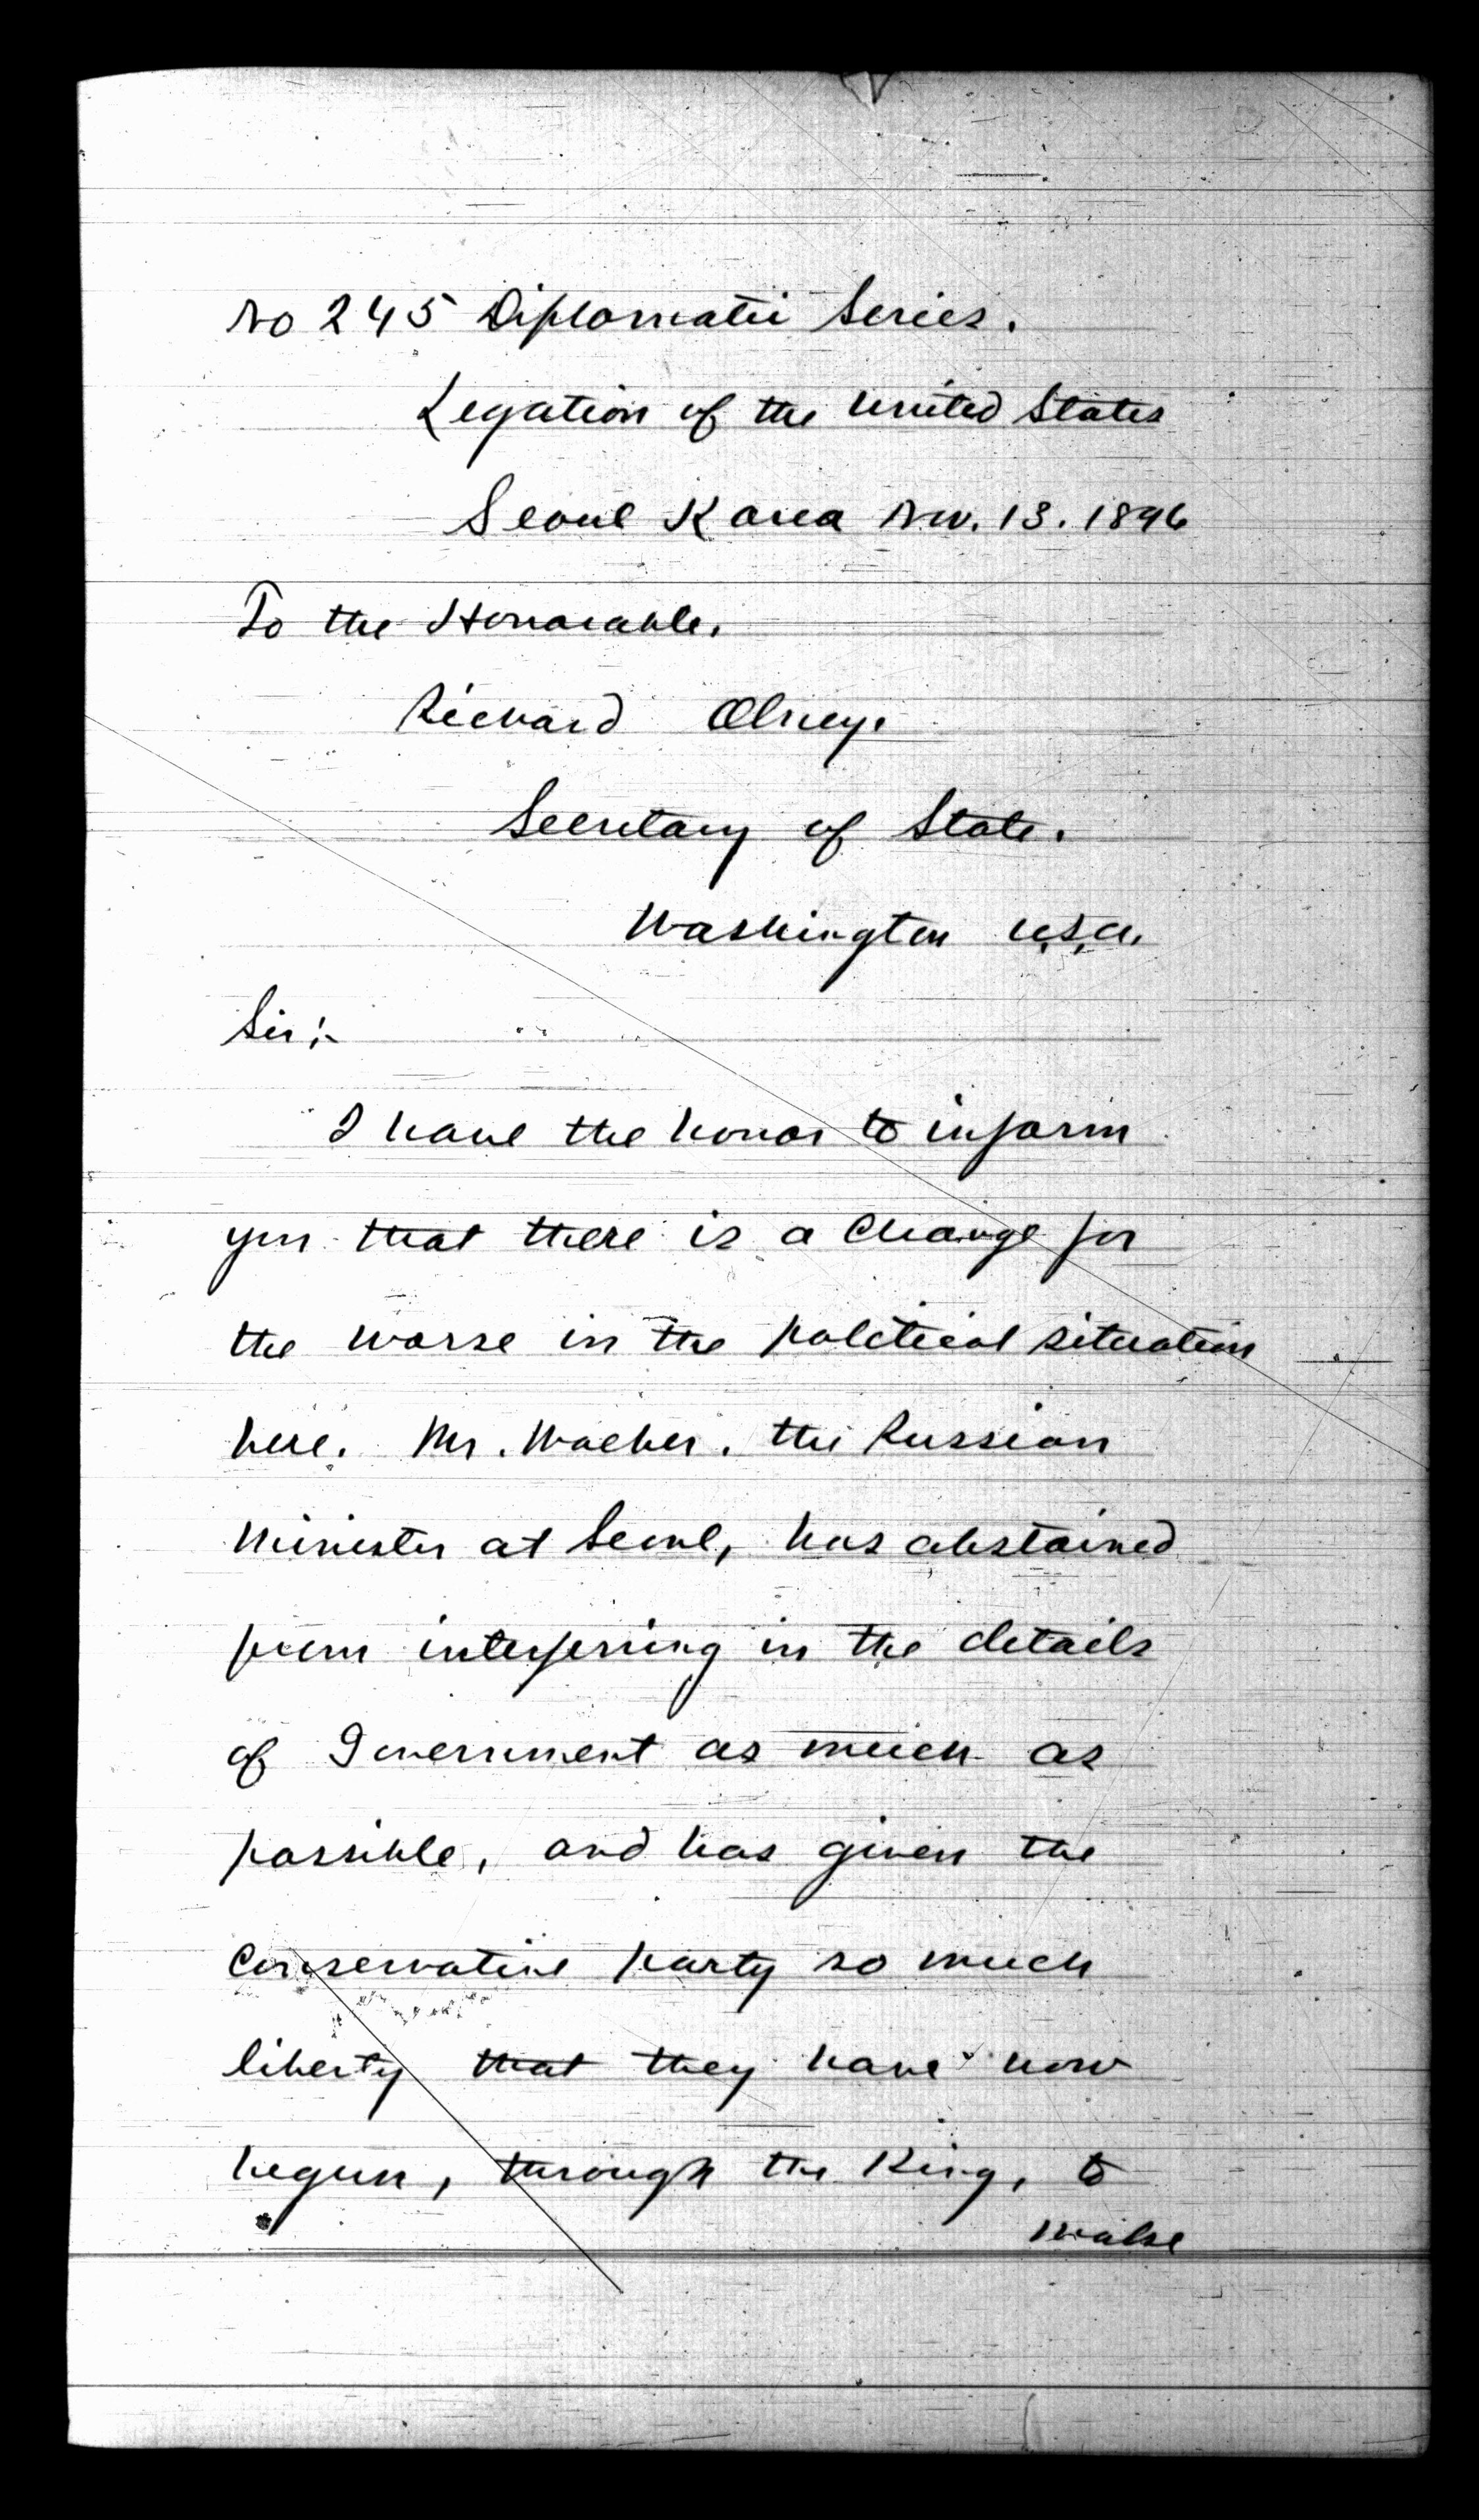 No 245 Diplomatic Series.
Legation of the United States
Seoul Korea Nov. 13. 1896
To the Honorable,
Richard Olney.
Secretary of State.
Washington U.S.A.
Sir:-
I have the honor to inform
you that there is a change for
the worse in the political situation
here. Mr. Waeber, the Russian
Minister at Seoul, has abstained
from interferring in the details
of Government as much as
possible, and has given the
Conservative party so much
liberty that they have now
begun, through the King, to
make